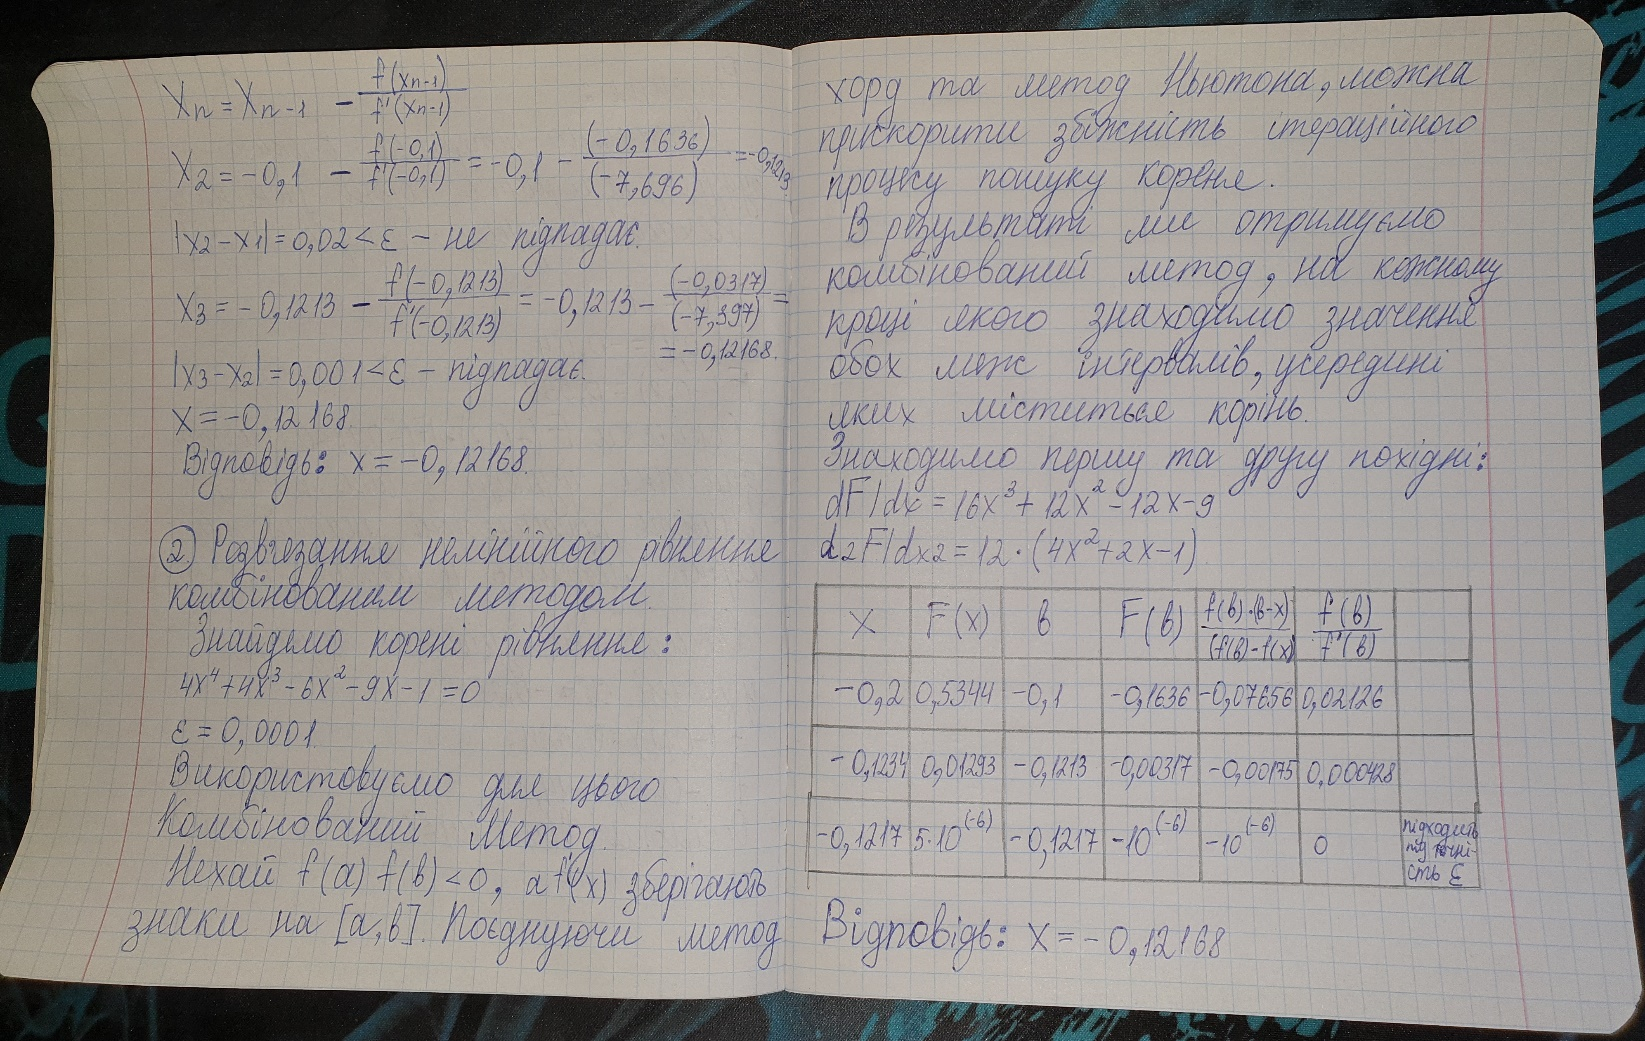 Xn = Xn-1 - f(xn-1)/f'(xn-1)
X2 = -0,1 - f(-0,1)/f'(-0,1) = -0,1 - (-0,1636)/(-7,696) = -0,1213
|x2-x1| = 0,02 < ε - не підпадає.
X3 = -0,1213 - f(-0,1213)/f'(-0,1213) = -0,1213 - (-0,0317)/(-7,397) =
= -0,12168.
|x3-x2| = 0,001 < ε - підпадає.
X = -0,12168.
Відповідь: x = -0,12168.
② Розв'язання нелінійного рівняння
комбінованим методом.
Знайдемо корені рівняння:
4x⁴+4x³-6x²-9x-1=0
ε = 0,0001.
Використовуємо для цього
Комбінований Метод.
Нехай f(a) f(в) < 0, а f'(x) зберігають
знаки на [a,в]. Поєднуючи метод
хорд та метод Ньютона, можна
прискорити збіжність ітераційного
процесу пошуку кореня.
В результаті ми отримуємо
комбінований метод, на кожному
кроці якого знаходимо значення
обох меж інтервалів, усередині
яких міститься корінь.
Знаходимо першу та другу похідні:
dF/dx = 16x³+12x²-12x-9
d2F/dx2 = 12·(4x²+2x-1)
X F(x) в F(в) f(в)·(в-x)/(f(в)-f(x)) f(в)/f'(в)
-0,2 0,5344 -0,1 -0,1636 -0,07656 0,02126
-0,1234 0,01293 -0,1213 -0,00317 -0,00175 0,000428
-0,1217 5·10^(-6) -0,1217 -10^(-6) -10^(-6) 0 підходить
під точні-
сть ε
Відповідь: x = -0,12168